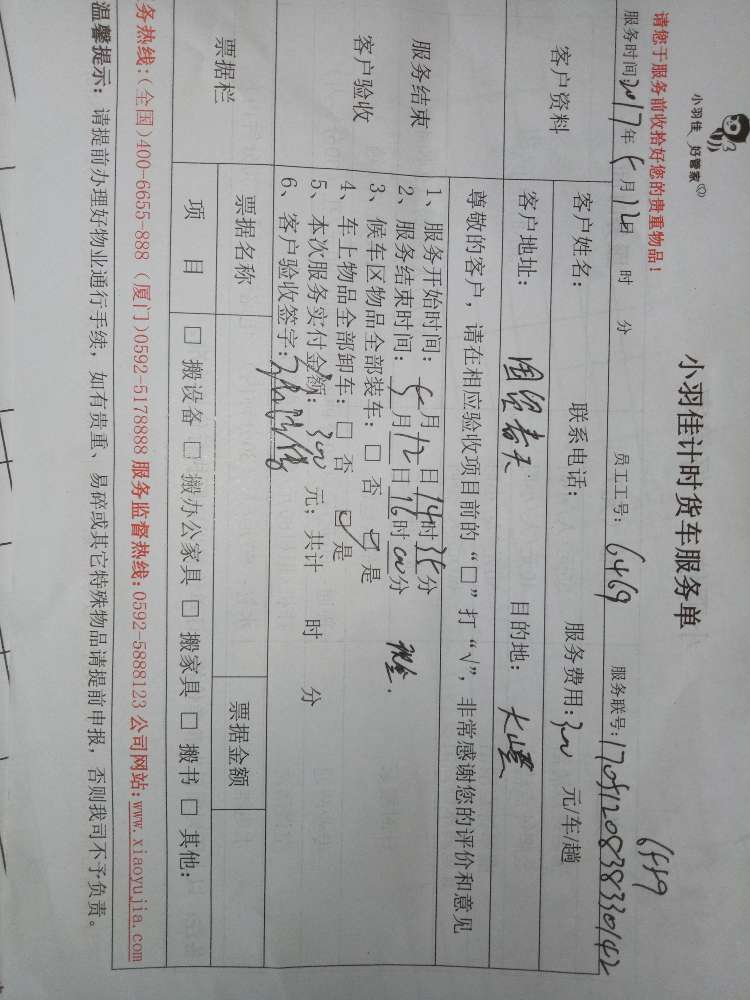 小羽佳 好管家
小羽佳计时货车服务单
请您于服务前收拾好您的贵重物品!
6469
服务时间:2017年5月12日 时 分 员工工号: 6469 服务联号:1705120838330142
客户资料
客户姓名: 联系电话: 服务费用:300 元/车/趟
客户地址: 国贸春天 目的地:
服务结束
客户验收
尊敬的客户,请在相应验收项目前的“□”打“√”,非常感谢您的评价和意见
1、服务开始时间: 5月12日14时35分
2、服务结束时间: 5月12日16时00分
现金.
3、候车区物品全部装车:□ 否 ☑ 是
4、车上物品全部卸车:□ 否 ☑ 是
5、本次服务实付金额: 300 元; 共计 时 分
6、客户验收签字:
票据栏
票据名称 票据金额
项 目 □ 搬设备 □ 搬办公家具 □ 搬家具 □ 搬书 □ 其他:
务热线:(全国)400-6655-888 (厦门)0592-5178888 服务监督热线:0592-5888123 公司网站:www.xiaoyujia.com
温馨提示: 请提前办理好物业通行手续,如有贵重、易碎或其它特殊物品请提前申报,否则我司不予负责。